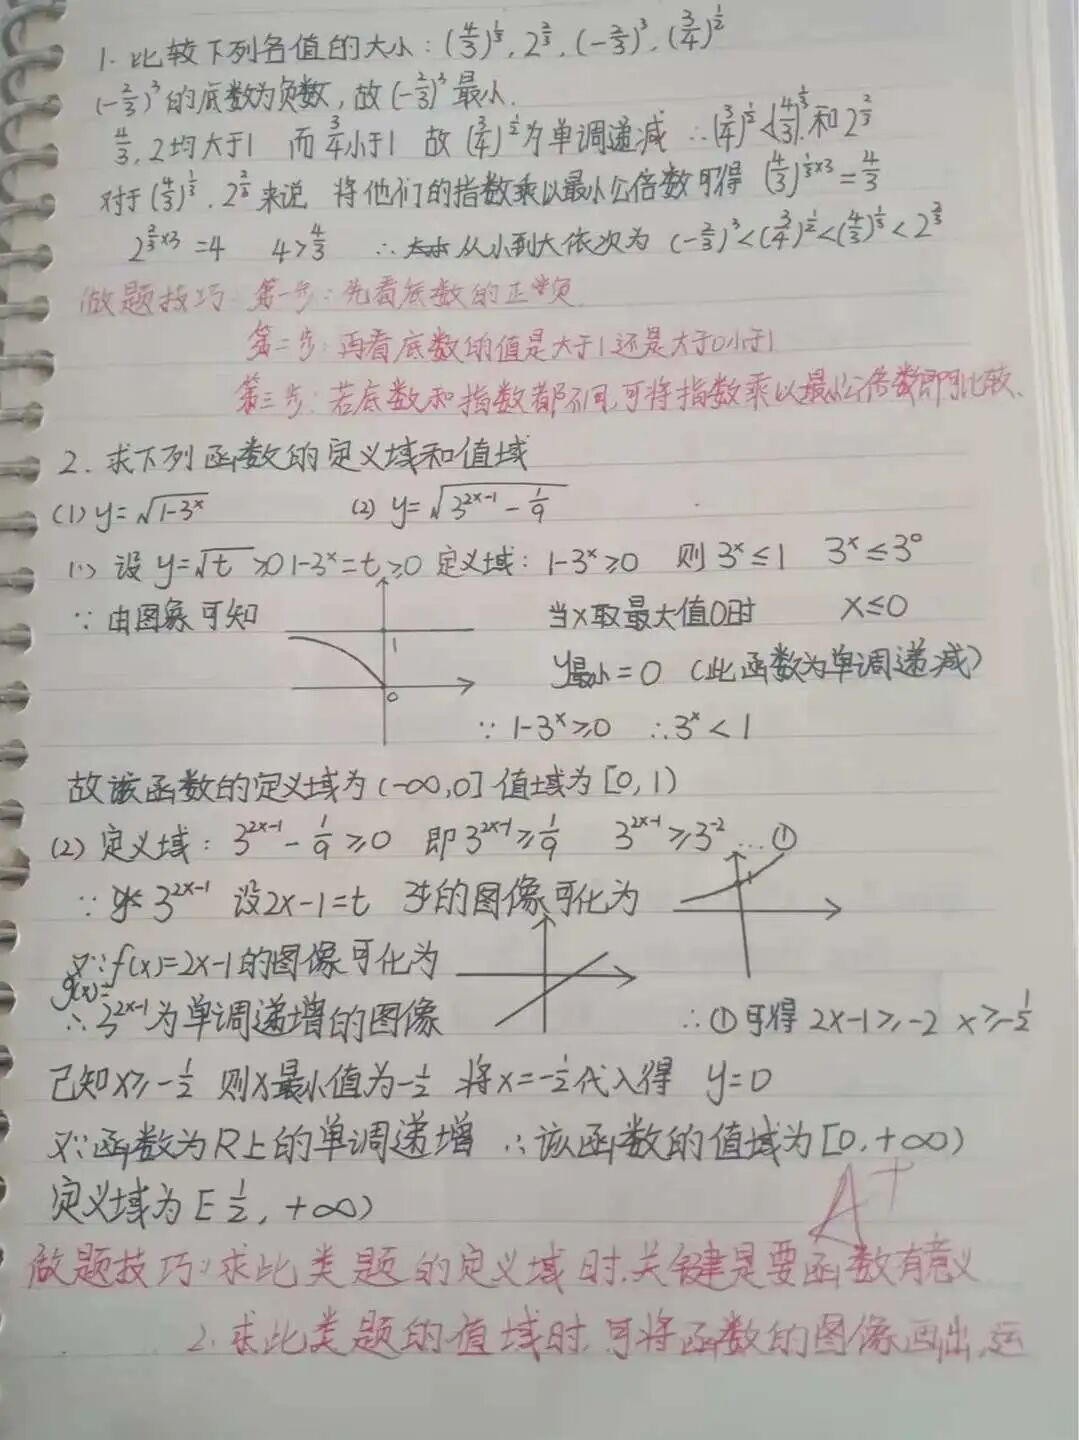 1. 比较下列各值的大小：(4/3)^(1/3), 2^(2/3), (-2/3)^3, (3/4)^(1/2)
(-2/3)^3的底数为负数，故(-2/3)^3最小.
4/3, 2均大于1 而3/4小于1 故(3/4)^(1/2)为单调递减 ∴(3/4)^(1/2)<(4/3)^(1/3)和2^(2/3)
对于(4/3)^(1/3), 2^(2/3)来说 将他们的指数乘以最小公倍数可得 (4/3)^(1/3×3)=4/3
2^(2/3×3)=4 4>4/3 ∴从小到大依次为 (-2/3)^3<(3/4)^(1/2)<(4/3)^(1/3)<2^(2/3)
做题技巧 第一步：先看底数的正负.
第二步：再看底数的值是大于1还是大于0小于1
第三步：若底数和指数都不同,可将指数乘以最小公倍数即可比较.
2. 求下列函数的定义域和值域
(1) y=√(1-3^x) (2) y=√(3^(2x-1) - 1/9)
(1) 设y=√t ≥0 1-3^x=t≥0 定义域：1-3^x≥0 则3^x≤1 3^x≤3^0
∵由图象可知 当x取最大值0时 x≤0
1
0
y最小=0 (此函数为单调递减)
∵1-3^x≥0 ∴3^x<1
故该函数的定义域为(-∞,0] 值域为[0,1)
(2) 定义域：3^(2x-1) - 1/9≥0 即3^(2x-1)≥1/9 3^(2x-1)≥3^-2 …①
3^(2x-1) 设2x-1=t 3^t的图像可化为
1
又∵f(x)=2x-1的图像可化为
g(x)=
∴3^(2x-1)为单调递增的图像 ∴①可得 2x-1≥-2 x≥-1/2
已知x≥-1/2 则x最小值为-1/2 将x=-1/2代入得 y=0
又∵函数为R上的单调递增 ∴该函数的值域为[0,+∞)
定义域为[-1/2,+∞)
A+
做题技巧：求此类题的定义域时,关键是要函数有意义
2.求此类题的值域时,可将函数的图像画出,运